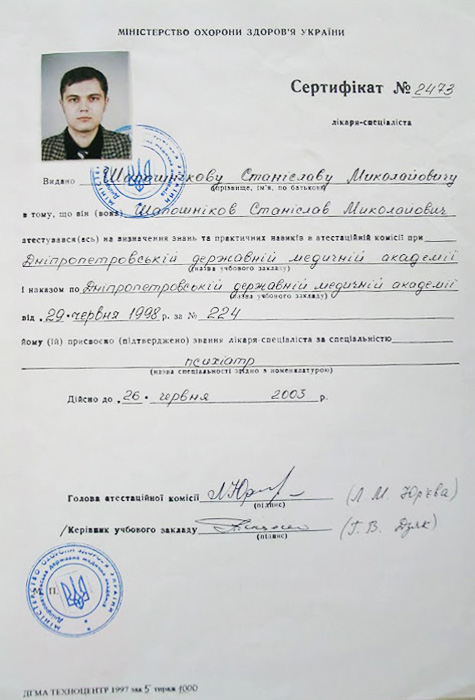 МІНІСТЕРСТВО ОХОРОНИ ЗДОРОВ'Я УКРАЇНИ
Сертифікат № 2473
лікаря-спеціаліста
Видано Шапошнікову Станіславу Миколайовичу
(прізвище, ім'я, по батькові)
в тому, що він (вона) Шапошніков Станіслав Миколайович
атестувався(ась) на визначення знань та практичних навиків в атестаційній комісії при
Дніпропетровській державній медичній академії
(назва учбового закладу)
і наказом по Дніпропетровській державній медичній академії
(назва учбового закладу)
від 29 червня 1998 р. за № 224
йому (їй) присвоєно (підтверджено) звання лікаря-спеціаліста за спеціальністю
психіатр
(назва спеціальності згідно з номенклатурою)
Дійсно до 26 червня 2003 р.
Голова атестаційної комісії (Л. М. Юр'єва)
(підпис)
Керівник учбового закладу (Г. В. Дзяк)
(підпис)
МІНІСТЕРСТВО ОХОРОНИ ЗДОРОВ'Я УКРАЇНИ
Дніпропетровська державна медична академія
М. П.
ДГМА ТЕХНОЦЕНТР 1997 зак 5 тираж 1000